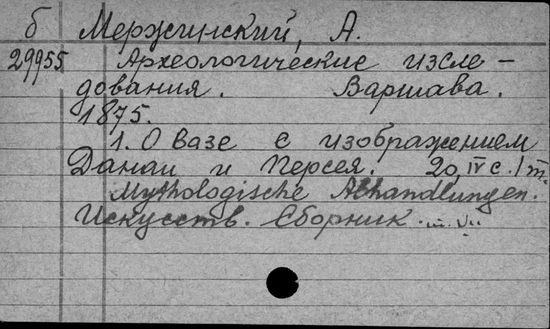 б Мержинский, А.
29955 Археологические иссле-
дования. Варшава.
1875.
1. О вазе с изображением
Данаи и Персея. 20, IV с. 1 т.
Mythologische Abhandlungen.
Искусств. Сборник.